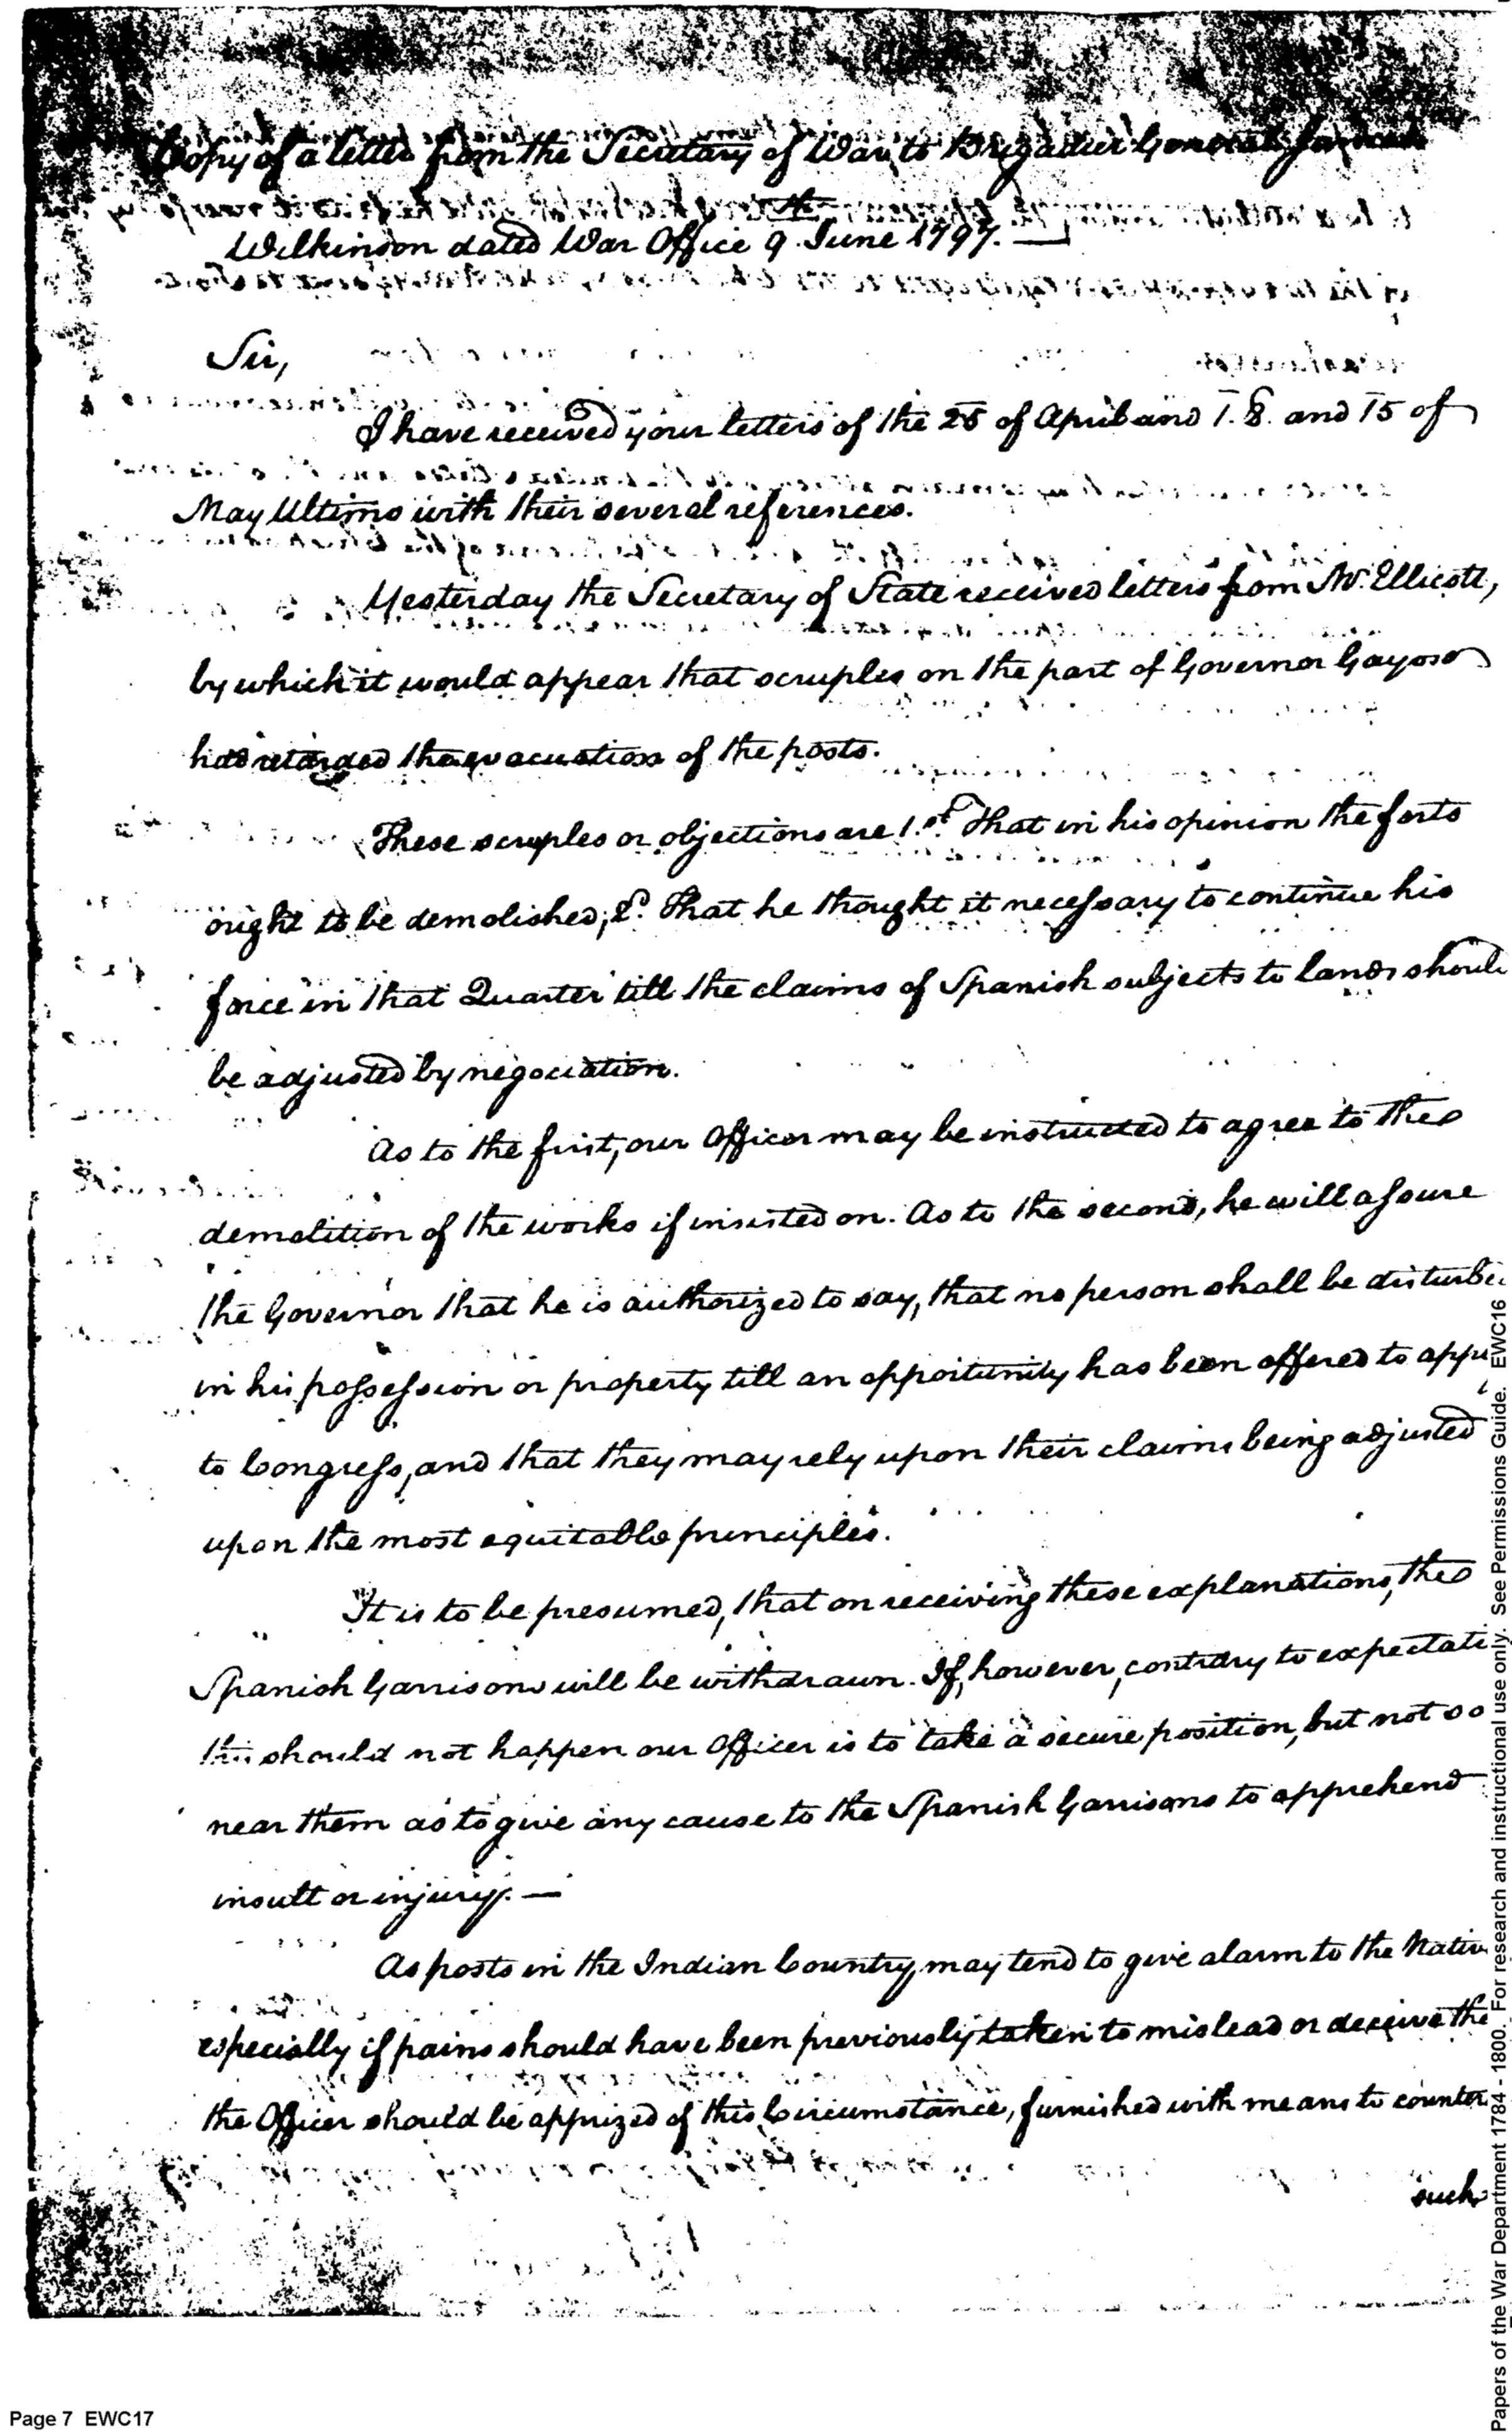 Copy of a letter from the Secretary of War, to Brigadier General James
Wilkinson dated War Office 9th June 1797.
Sir,
I have received your letters of the 25 of April and 1. 8. and 15 of
May Ultimo with their several references.
Yesterday the Secretary of State received letters from Mr. Ellicott,
by which it would appear that scruples on the part of Governor Gayoso
had retarded the evacuation of the posts.
These scruples or objections are 1.st That in his opinion the forts
ought to be demolished; 2d. That he thought it necessary to continue his
force in that Quarter till the claims of Spanish subjects to lands should
be adjusted by negociation.
As to the first, our Officer may be instructed to agree to the
demolition of the works if insisted on. As to the second, he will assure
the Governor that he is authorized to say, that no person shall be disturbe
in his possession or property till an opportunity has been offered to app
to Congress, and that they may rely upon their claims being adjusted
upon the most equitable principles.
It is to be presumed, that on receiving these explanations, the
Spanish Garrisons will be withdrawn. If, however, contrary to expectati
this should not happen our Officer is to take a secure position, but not so
near them as to give any cause to the Spanish Garrisons to apprehend
insult or injury. —
As posts in the Indian Country may tend to give alarm to the Nativ
especially if pains should have been previously taken to mislead or deceive the
the Officer should be apprized of this Circumstance, furnished with means to counter
such
Page 7 EWC17
Papers of the War Department 1784 - 1800. For research and instructional use only. See Permissions Guide. EWC16